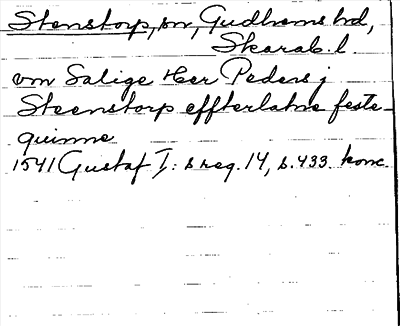 Stenstorp, sn, Gudhems hd,
Skarab. l.
om Salige Her Peders j
Steenstorp effterlatne feste-
quinne
1541 Gustaf I: s reg. 14, s. 433. konc.